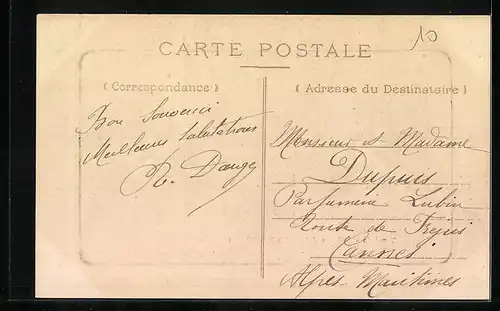 CARTE POSTALE
10
(Correspondance)
(Adresse du Destinataire)
Bon Souvenir
Meilleures Salutations
Monsieur et Madame
Dupuis
Parfumerie Lubin
Route de Fréjus
Cannes
Alpes Maritimes